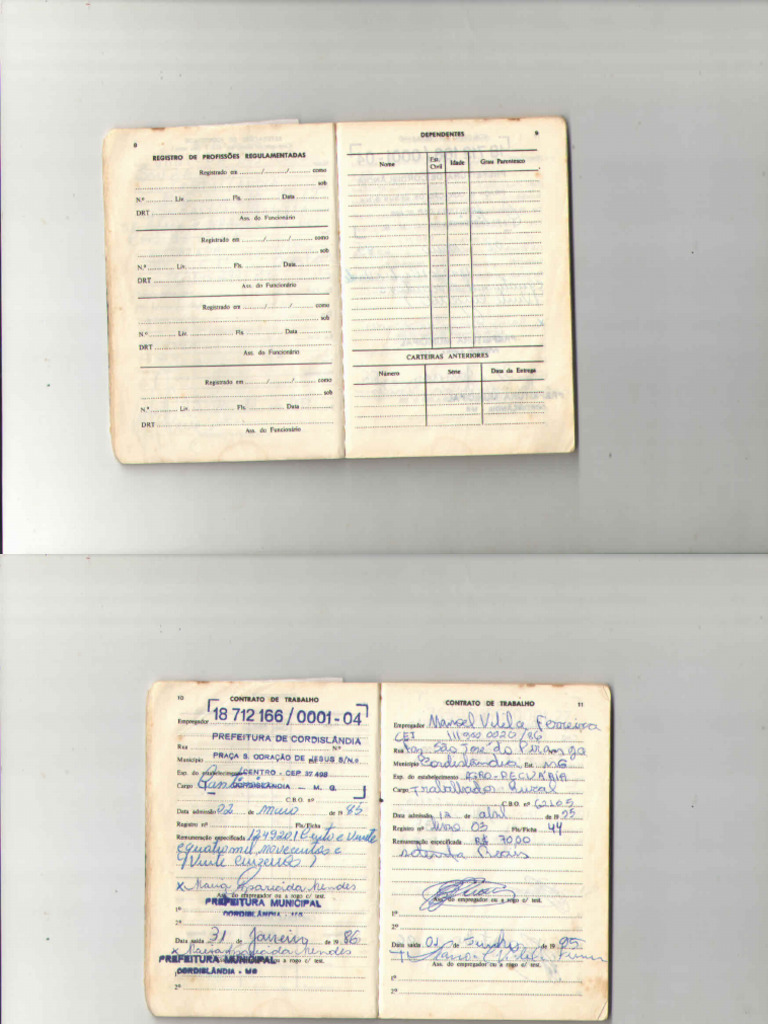 8
REGISTRO DE PROFISSÕES REGULAMENTADAS
Registrado em ........../........../.......... como
sob
N.º ............ Liv. ............ Fls. ............ Data ............
DRT
Ass. do Funcionário
Registrado em ........../........../.......... como
sob
N.º ............ Liv. ............ Fls. ............ Data ............
DRT
Ass. do Funcionário
Registrado em ........../........../.......... como
sob
N.º ............ Liv. ............ Fls. ............ Data ............
DRT
Ass. do Funcionário
Registrado em ........../........../.......... como
sob
N.º ............ Liv. ............ Fls. ............ Data ............
DRT
Ass. do Funcionário
DEPENDENTES 9
Nome Est. Civil Idade Grau Parentesco
CARTEIRAS ANTERIORES
Número Série Data da Entrega
10 CONTRATO DE TRABALHO
18 712 166 / 0001-04
Empregador
PREFEITURA DE CORDISLÂNDIA
Rua Nº
Município PRAÇA S. CORAÇÃO DE JESUS S/N.º
Esp. do estabelecimento CENTRO - CEP 37 498
Cargo CORDISLÂNDIA — M. G.
C.B.O. nº
Data admissão 02 de maio de 19 85
Registro nº Fls/Ficha
Remuneração especificada 124920 (Cento e Vinte
e quatro mil novecentos e
Vinte Cruzeiros)
x Maria Aparecida Mendes
Ass. do empregador ou a rogo c/ test.
PREFEITURA MUNICIPAL
1º CORDISLÂNDIA - MG
2º
Data saída 31 de Janeiro de 19 86
x Maria Aparecida Mendes
PREFEITURA MUNICIPAL ou a rogo c/ test.
CORDISLÂNDIA - MG
2º
CONTRATO DE TRABALHO 11
Empregador Manoel Vilela Ferreira
CEI 111900 0020/86
Rua Faz. São José do Piranga
Município Cordislândia Est. MG
Esp. do estabelecimento AGRO-PECUÁRIA
Cargo Trabalhador Rural
C.B.O. nº 62105
Data admissão 12 de abril de 19 95
Registro nº 03 Fls/Ficha 44
Remuneração especificada R$ 70,00
setenta Reais
Ass. do empregador ou a rogo c/ test.
1º
2º
Data saída 01 de Junho de 19 95
Ass. do empregador ou a rogo c/ test.
1º
2º